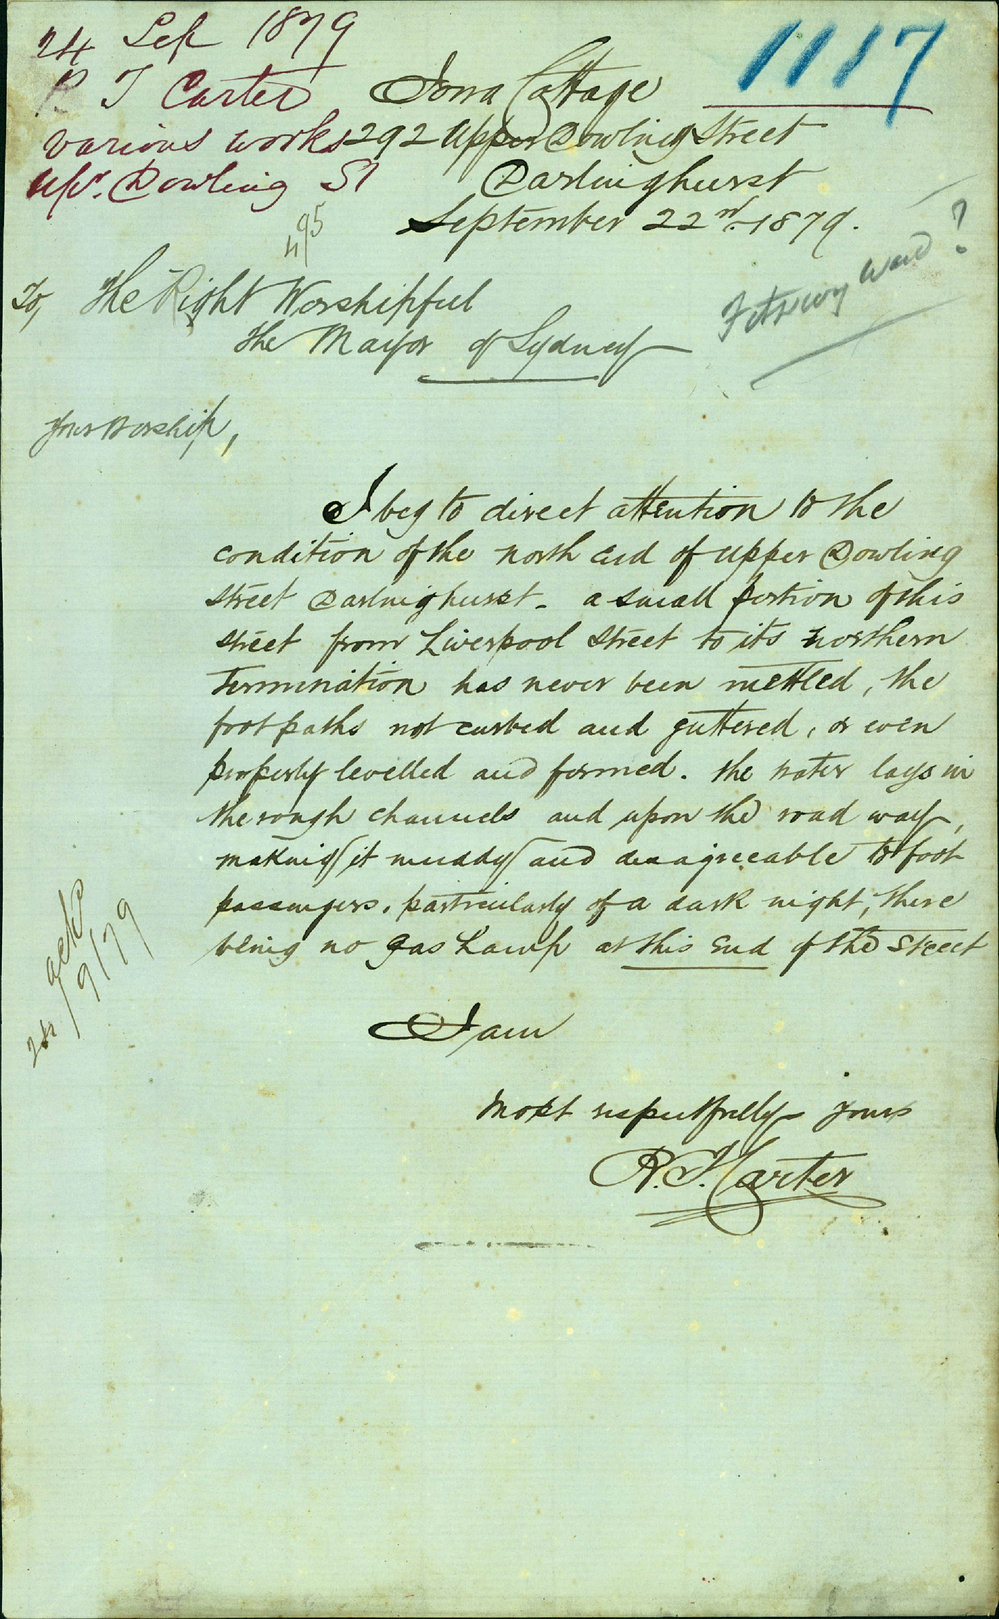 24 Sep 1879
R T Carter
various works
Upr. Dowling St
1117
Iona Cottage
292 Upper Dowling Street
Darlinghurst
September 22nd. 1879.
495
Fitzroy Ward?
To, The Right Worshipful
the Mayor of Sydney
Your Worship,
I beg to direct attention to the
condition of the north end of Upper Dowling
Street Darlinghurst - a small portion of this
street from Liverpool Street to its northern
termination has never been mettled, the
footpaths not curbed and guttered, or even
properly levelled and formed. the water lays in
the rough channels and upon the road way,
making it muddy and disagreeable to foot
passengers. particularly of a dark night, there
being no gas Lamp at this End of the Street
I am
Most respectfully yours
R. T. Carter
24/9/79